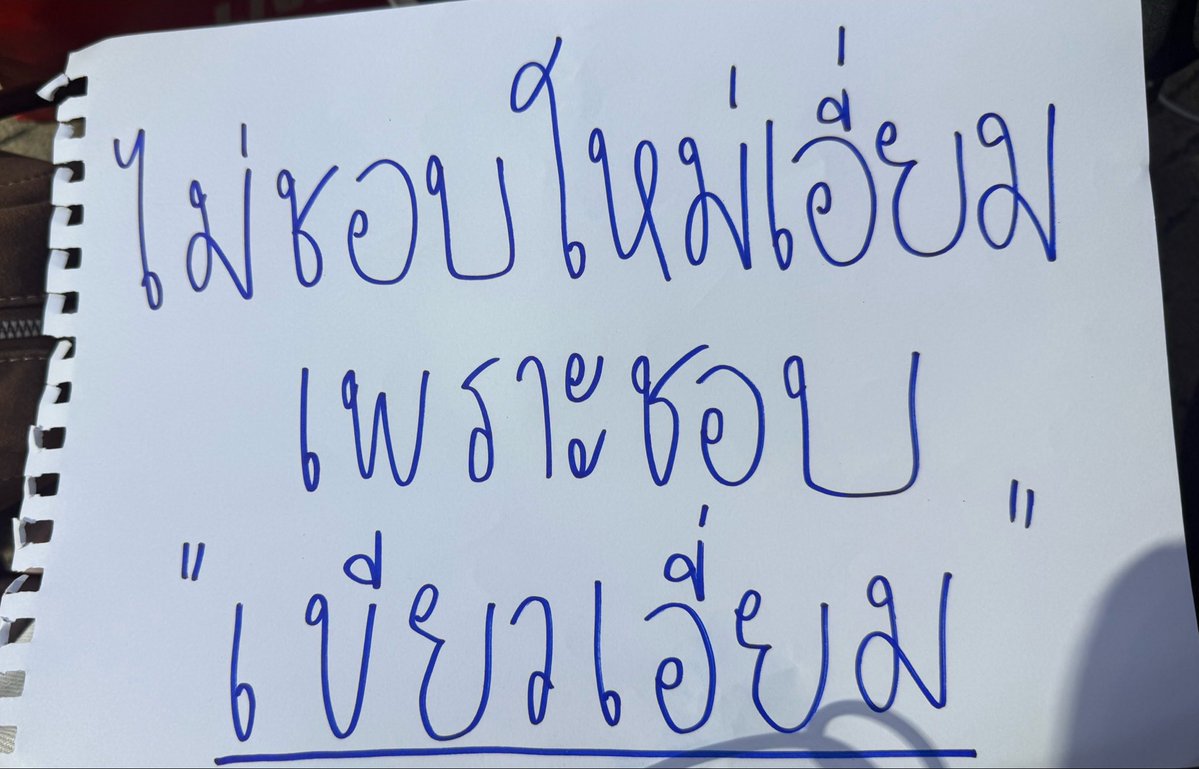 ไม่ชอบใหม่เอี่ยม
เพราะชอบ
"เขียวเอี่ยม"